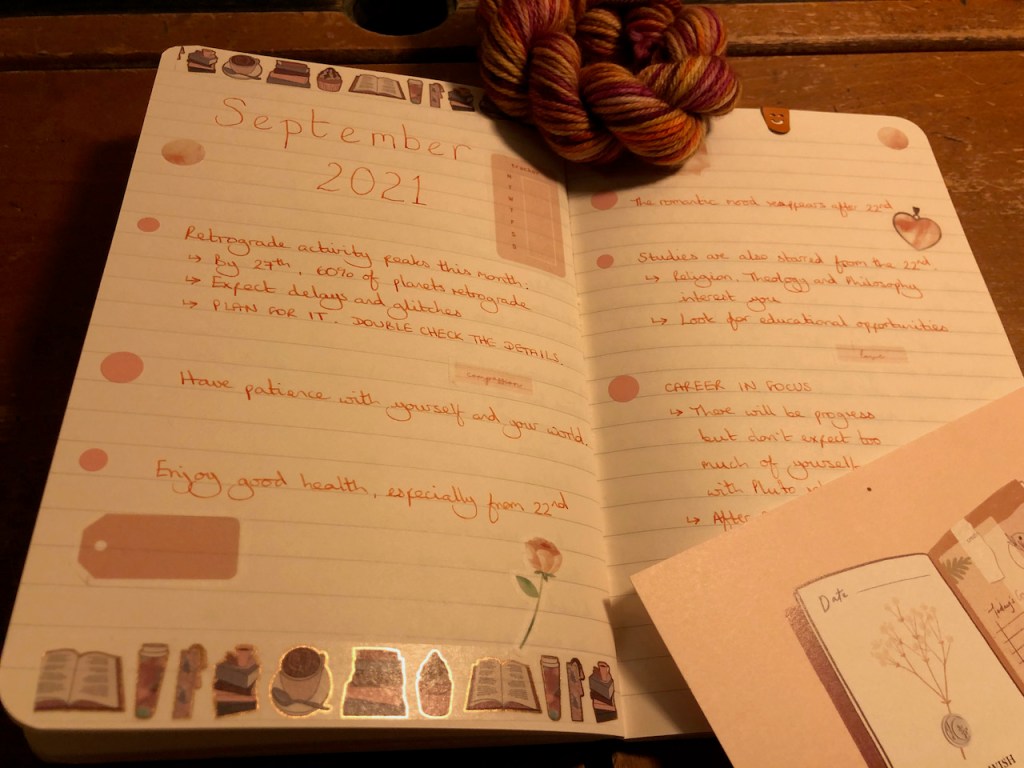 September
2021
Retrograde activity peaks this month.
↳ By 27th, 60% of planets retrograde
↳ Expect delays and glitches
↳ PLAN FOR IT. DOUBLE CHECK THE DETAILS.
Have patience with yourself and your world.
Enjoy good health, especially from 22nd
M
T
W
T
F
S
S
The romantic mood reappears after 22nd
Studies are also starred from the 22nd.
↳ Religion, Theology and Philosophy
interest you
↳ Look for educational opportunities
CAREER IN FOCUS
↳ There will be progress
but don't expect too
much of yourself
with Pluto
↳ After
Date
Today's
WISH